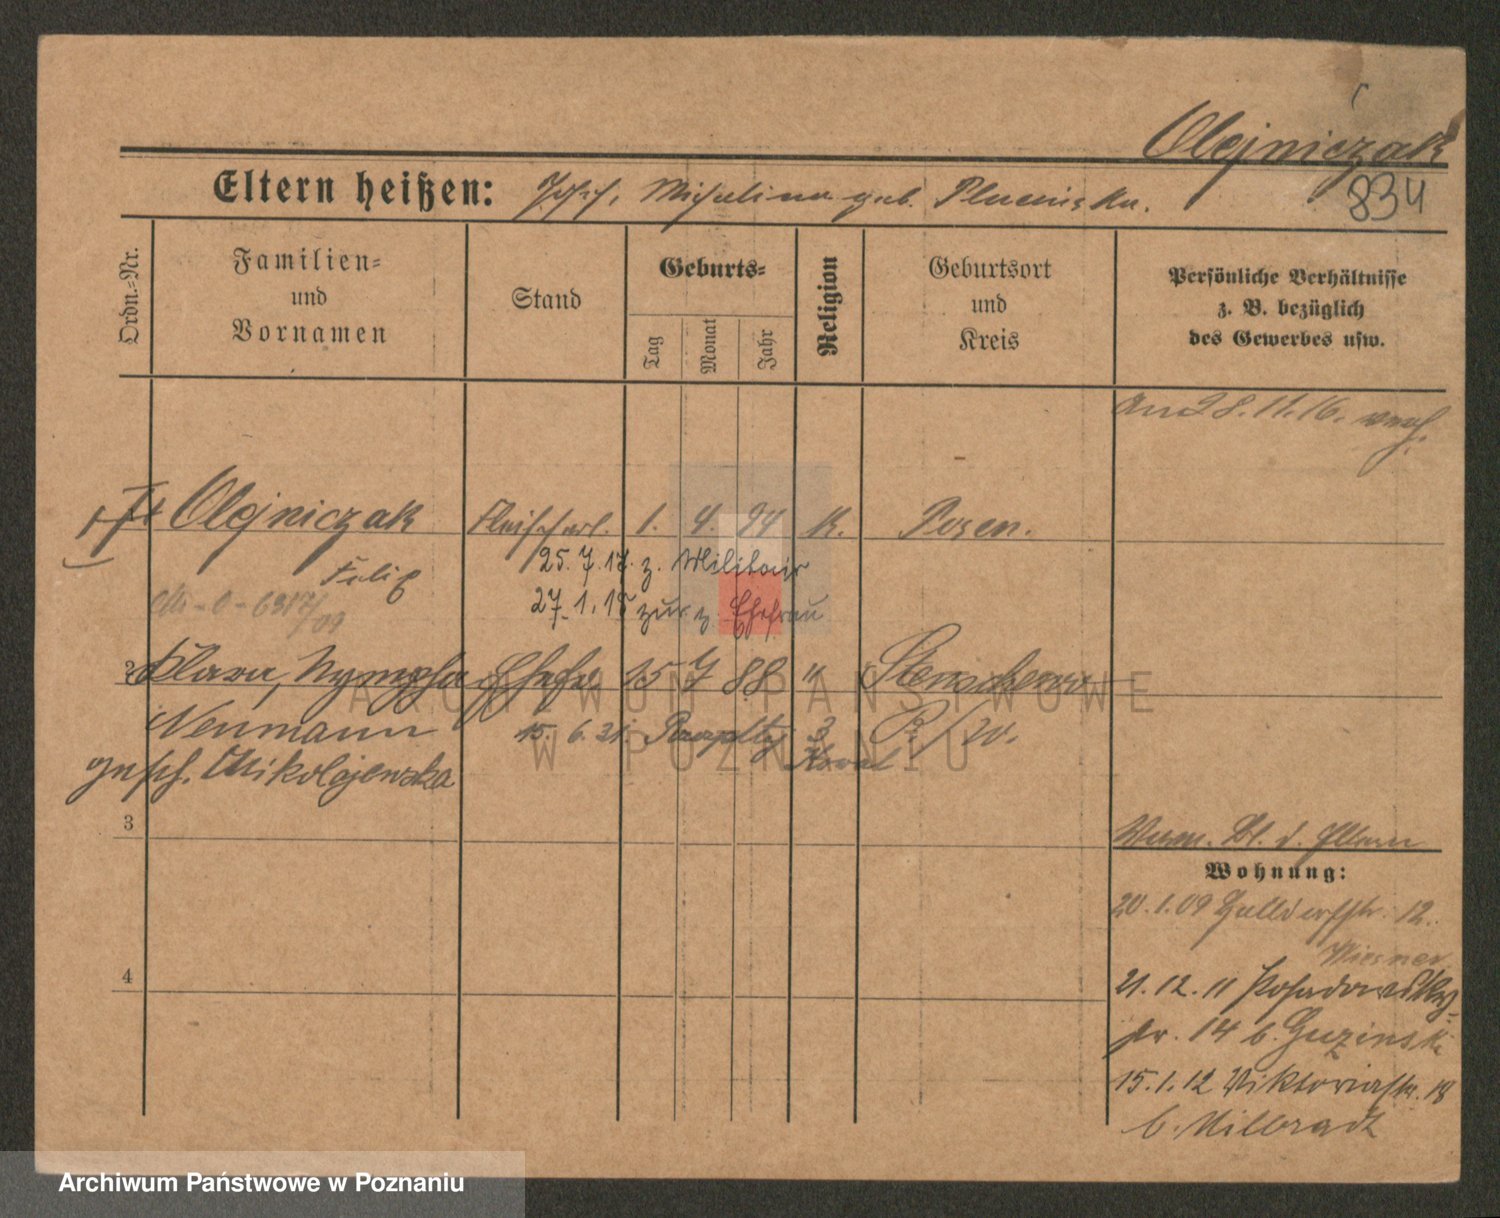 Olejniczak
834
Eltern heißen: Josef, Michalina geb. Plucinska.
Ordn.-Nr.
Familien-
und
Vornamen
Stand
Geburts-
Tag
Monat
Jahr
Religion
Geburtsort
und
Kreis
Persönliche Verhältnisse
z. B. bezüglich
des Gewerbes usw.
am 28.11.16. verh.
Olejniczak
Fleischerl. 1. 4. 94 K. Posen.
Felix
25.7.17. z. Militair
27.1.18 zur z. Ehefrau
2 Klara, Nympha Ehefr 15 7 88 "
Neumann
15. 6. 21.
gesch. Mikolajewska
3
d. Eltern
Wohnung:
20.1.09 12.
Wiesner
21.12.11 Posadowsky-
str. 14 b. Guzinski
15.1.12 Viktoriastr. 18
b. Milbradt
4
ARCHIWUM PAŃSTWOWE
W POZNANIU
Archiwum Państwowe w Poznaniu